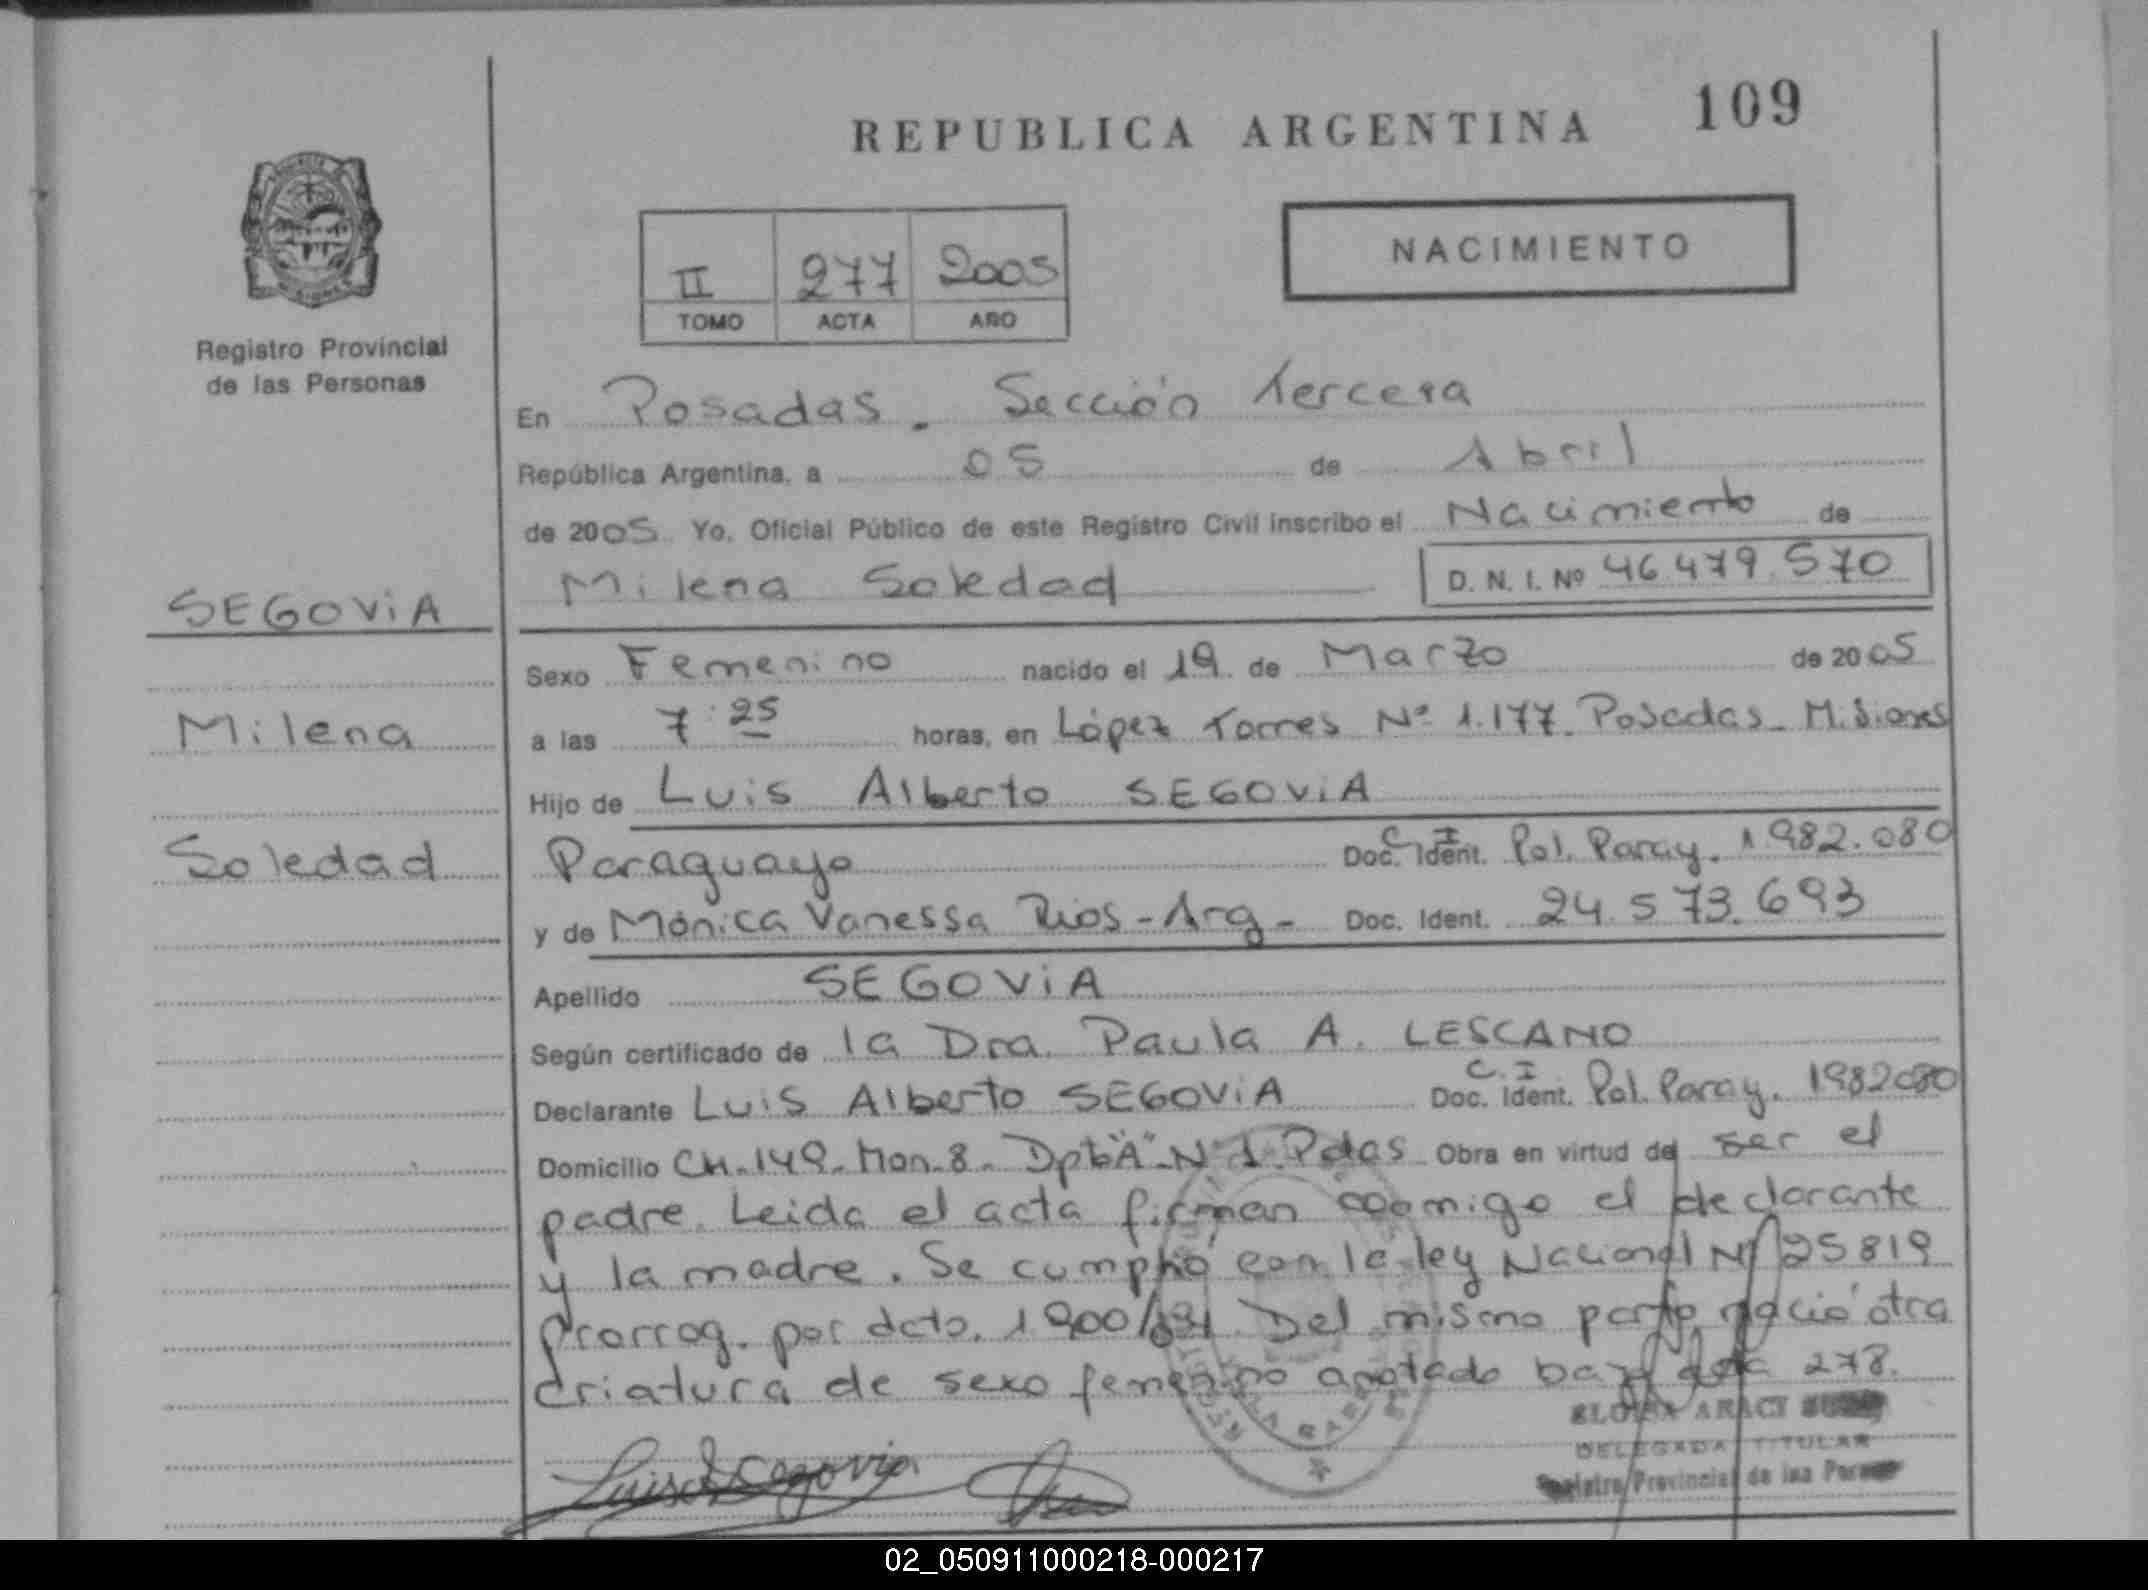 REPUBLICA ARGENTINA 109
NACIMIENTO
II 277 2005
TOMO ACTA AÑO
Registro Provincial
de las Personas
En Posadas. Sección Tercera
República Argentina, a 05 de Abril
de 2005 Yo, Oficial Público de este Registro Civil inscribo el Nacimiento de
Milena Soledad D. N. I. Nº 46.479.570
SEGOVIA
Milena
Soledad
Sexo Femenino nacido el 19 de Marzo de 2005
a las 7:25 horas, en López Torres Nº 1.177. Posadas - Misiones
Hijo de Luis Alberto SEGOVIA
Paraguayo Doc. Ident. C. I. Pol. Paray. 1982.080
y de Mónica Vanessa Rios - Arg - Doc. Ident. 24.573.693
Apellido SEGOVIA
Según certificado de la Dra. Paula A. LESCANO
Declarante Luis Alberto SEGOVIA Doc. Ident. C. I. Pol. Paray. 1982080
Domicilio CH. 149. Man. 8. Dpto "A" Nº 1. Pdas Obra en virtud de ser el
padre. Leida el acta firman conmigo el declarante
y la madre. Se cumplió con la ley Nacional Nº 25819
Prorrog. por dcto. Del mismo parto nació otra
criatura de sexo femenino anotado bajo acta 278.
Luis A Segovia
ARACI
DELEGADA TITULAR
Registro Provincial de las Personas
02_050911000218-000217